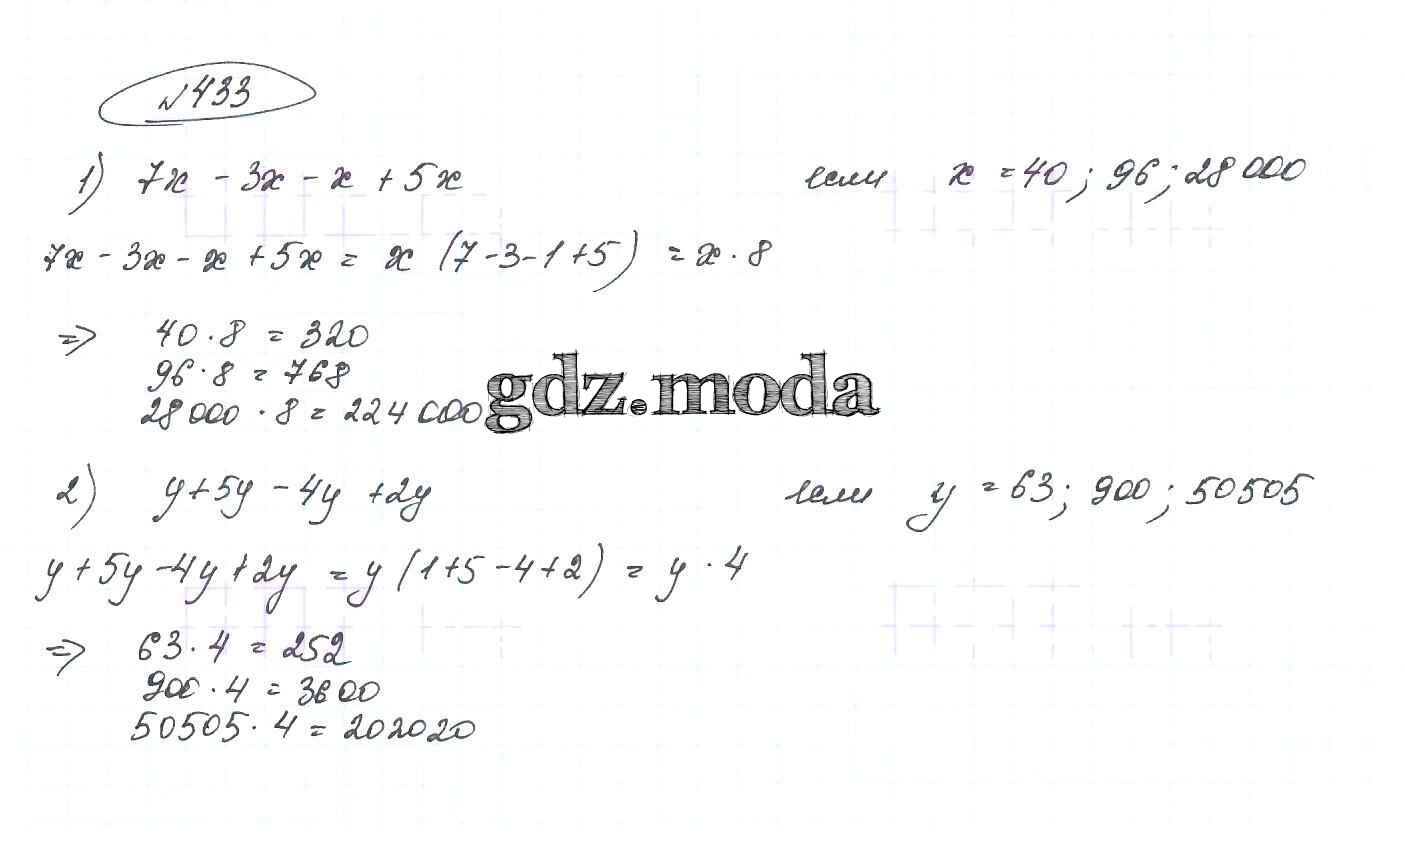 №433
1) 7x - 3x - x + 5x если x = 40; 96; 28 000
7x - 3x - x + 5x = x (7-3-1+5) = x · 8
=> 40 · 8 = 320
96 · 8 = 768
28 000 · 8 = 224 000
gdz.moda
2) y+5y - 4y +2y если y = 63; 900; 50505
y+5y-4y+2y = y (1+5-4+2) = y · 4
=> 63 · 4 = 252
900 · 4 = 3600
50505 · 4 = 202020